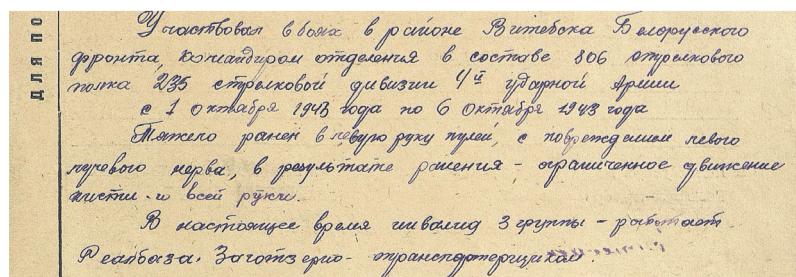 ДЛЯ ПО
Участвовал в боях в районе Витебска Белорусского
фронта, командиром отделения в составе 806 стрелкового
полка 235 стрелковой дивизии 4й ударной Армии
с 1 октября 1943 года по 6 октября 1943 года
Тяжело ранен в левую руку пулей, с повреждением левого
лучевого нерва, в результате ранения - ограниченное движение
кисти и всей руки.
В настоящее время инвалид 3 группы - работает
Реалбаза. Заготзерно - транспортерщиком.